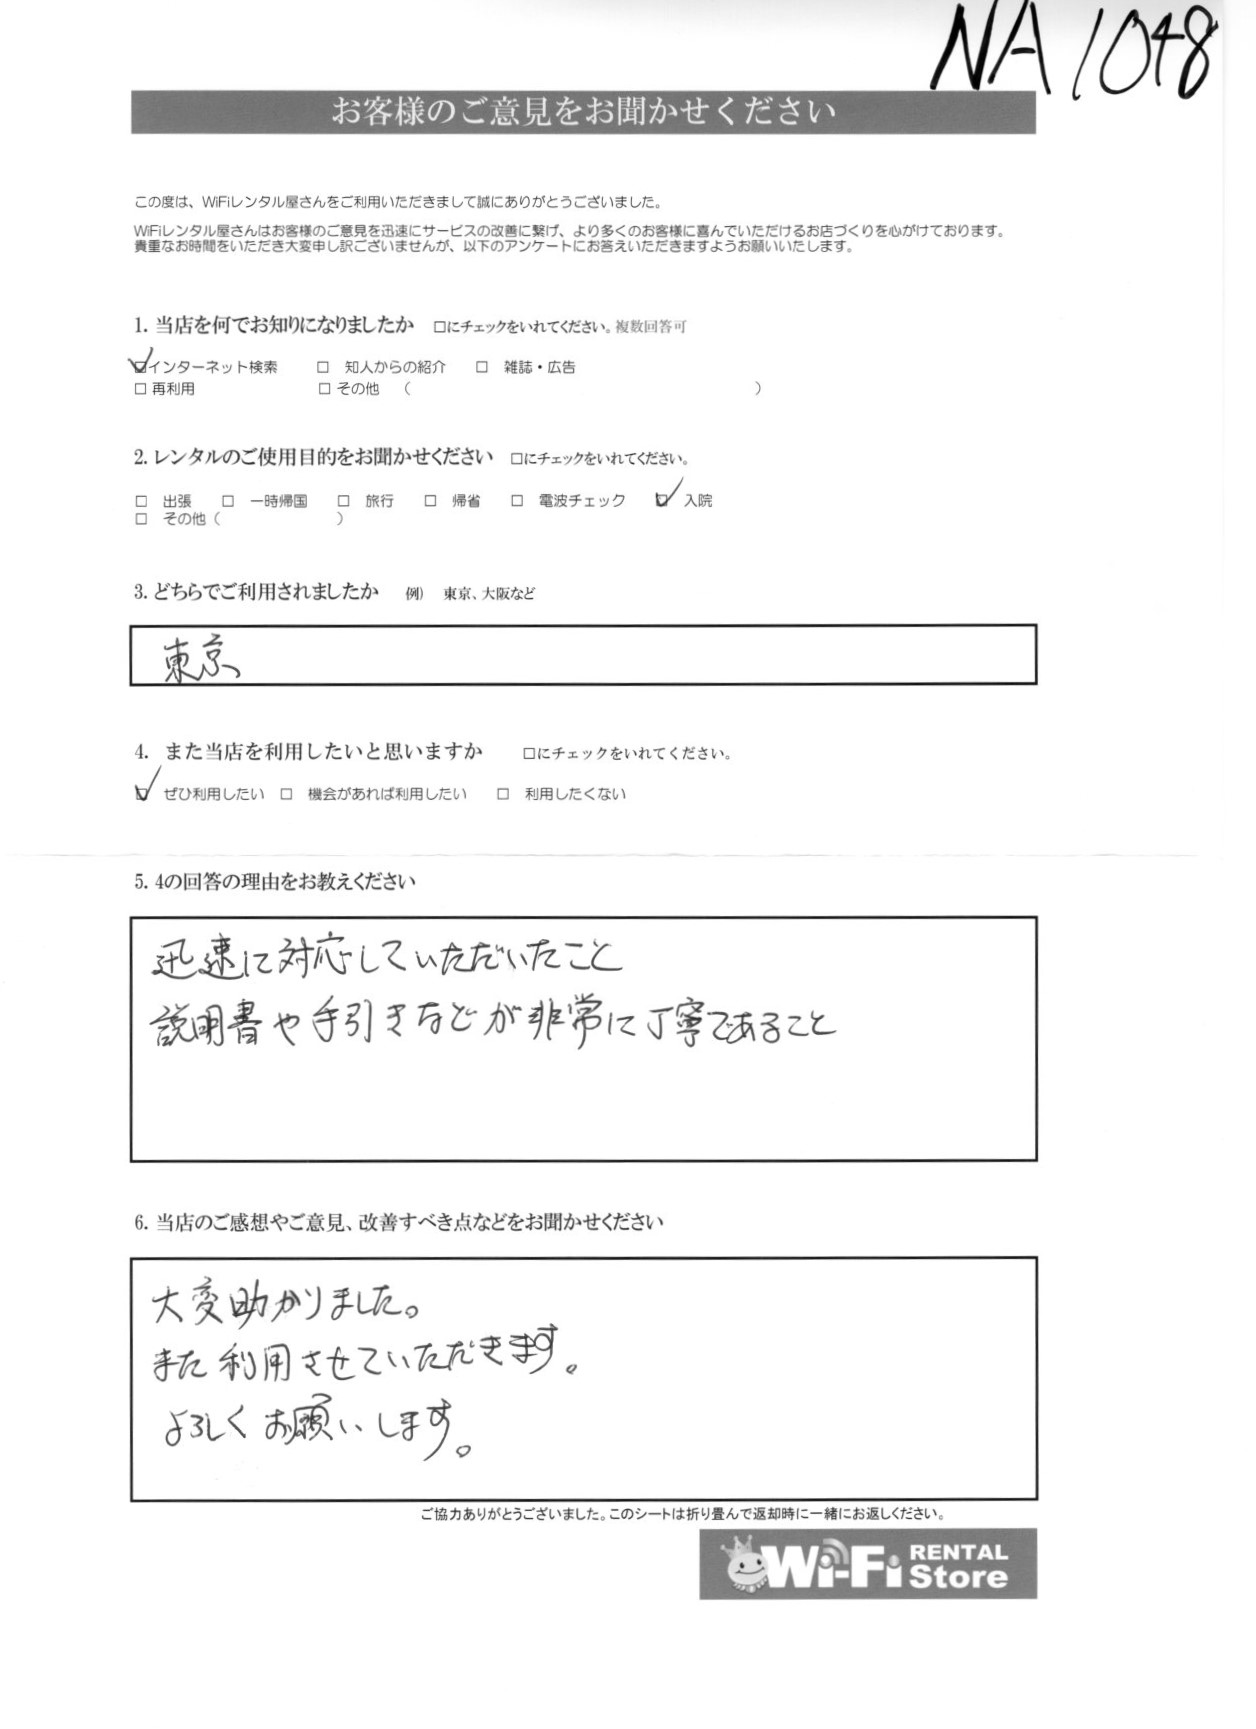 NA1048
お客様のご意見をお聞かせください
この度は、WiFiレンタル屋さんをご利用いただきまして誠にありがとうございました。
WiFiレンタル屋さんはお客様のご意見を迅速にサービスの改善に繋げ、より多くのお客様に喜んでいただけるお店づくりを心がけております。
貴重なお時間をいただき大変申し訳ございませんが、以下のアンケートにお答えいただきますようお願いいたします。
1. 当店を何でお知りになりましたか □にチェックをいれてください。複数回答可
☑インターネット検索 □ 知人からの紹介 □ 雑誌・広告
□ 再利用 □ その他 ( )
2. レンタルのご使用目的をお聞かせください □にチェックをいれてください。
□ 出張 □ 一時帰国 □ 旅行 □ 帰省 □ 電波チェック ☑ 入院
□ その他 ( )
3. どちらでご利用されましたか 例) 東京、大阪など
東京
4. また当店を利用したいと思いますか □にチェックをいれてください。
☑ ぜひ利用したい □ 機会があれば利用したい □ 利用したくない
5. 4の回答の理由をお教えください
迅速に対応していただいたこと
説明書や手引きなどが非常に丁寧であること
6. 当店のご感想やご意見、改善すべき点などをお聞かせください
大変助かりました。
また利用させていただきます。
よろしくお願いします。
ご協力ありがとうございました。このシートは折り畳んで返却時に一緒にお返しください。
Wi-Fi RENTAL Store